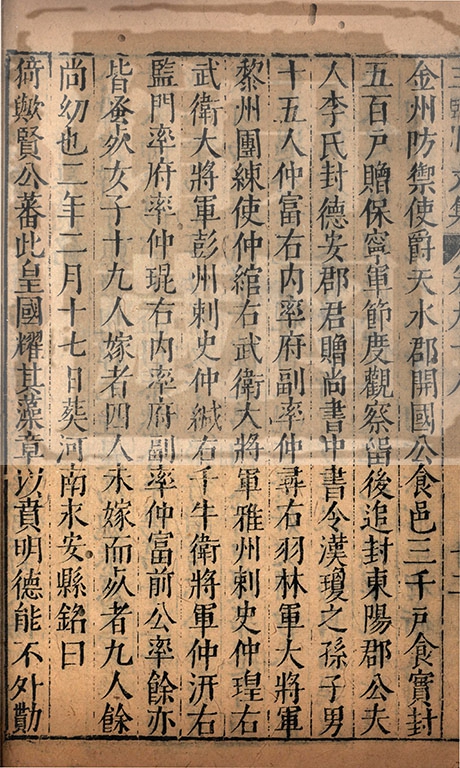 金州防禦使爵天水郡開國公食邑三千戸食實封
五百戸贈保寧軍節度觀察留後追封東陽郡公夫
人李氏封德安郡君贈尚書中書令漢瓊之孫子男
十五人仲富右内率府副率仲尋右羽林軍大將軍
黎州團練使仲綰右武衛大將軍雅州刺史仲瑝右
武衛大將軍彭州刺史仲緘右千牛衛將軍仲汧右
監門率府率仲琨右内率府副率仲富前公率餘亦
皆蚤死女子十九人嫁者四人未嫁而死者九人餘
尚幼也二年二月十七日葬河南永安縣銘曰
猗歟賢公蕃此皇國耀其藻章以賁明德能不外勩